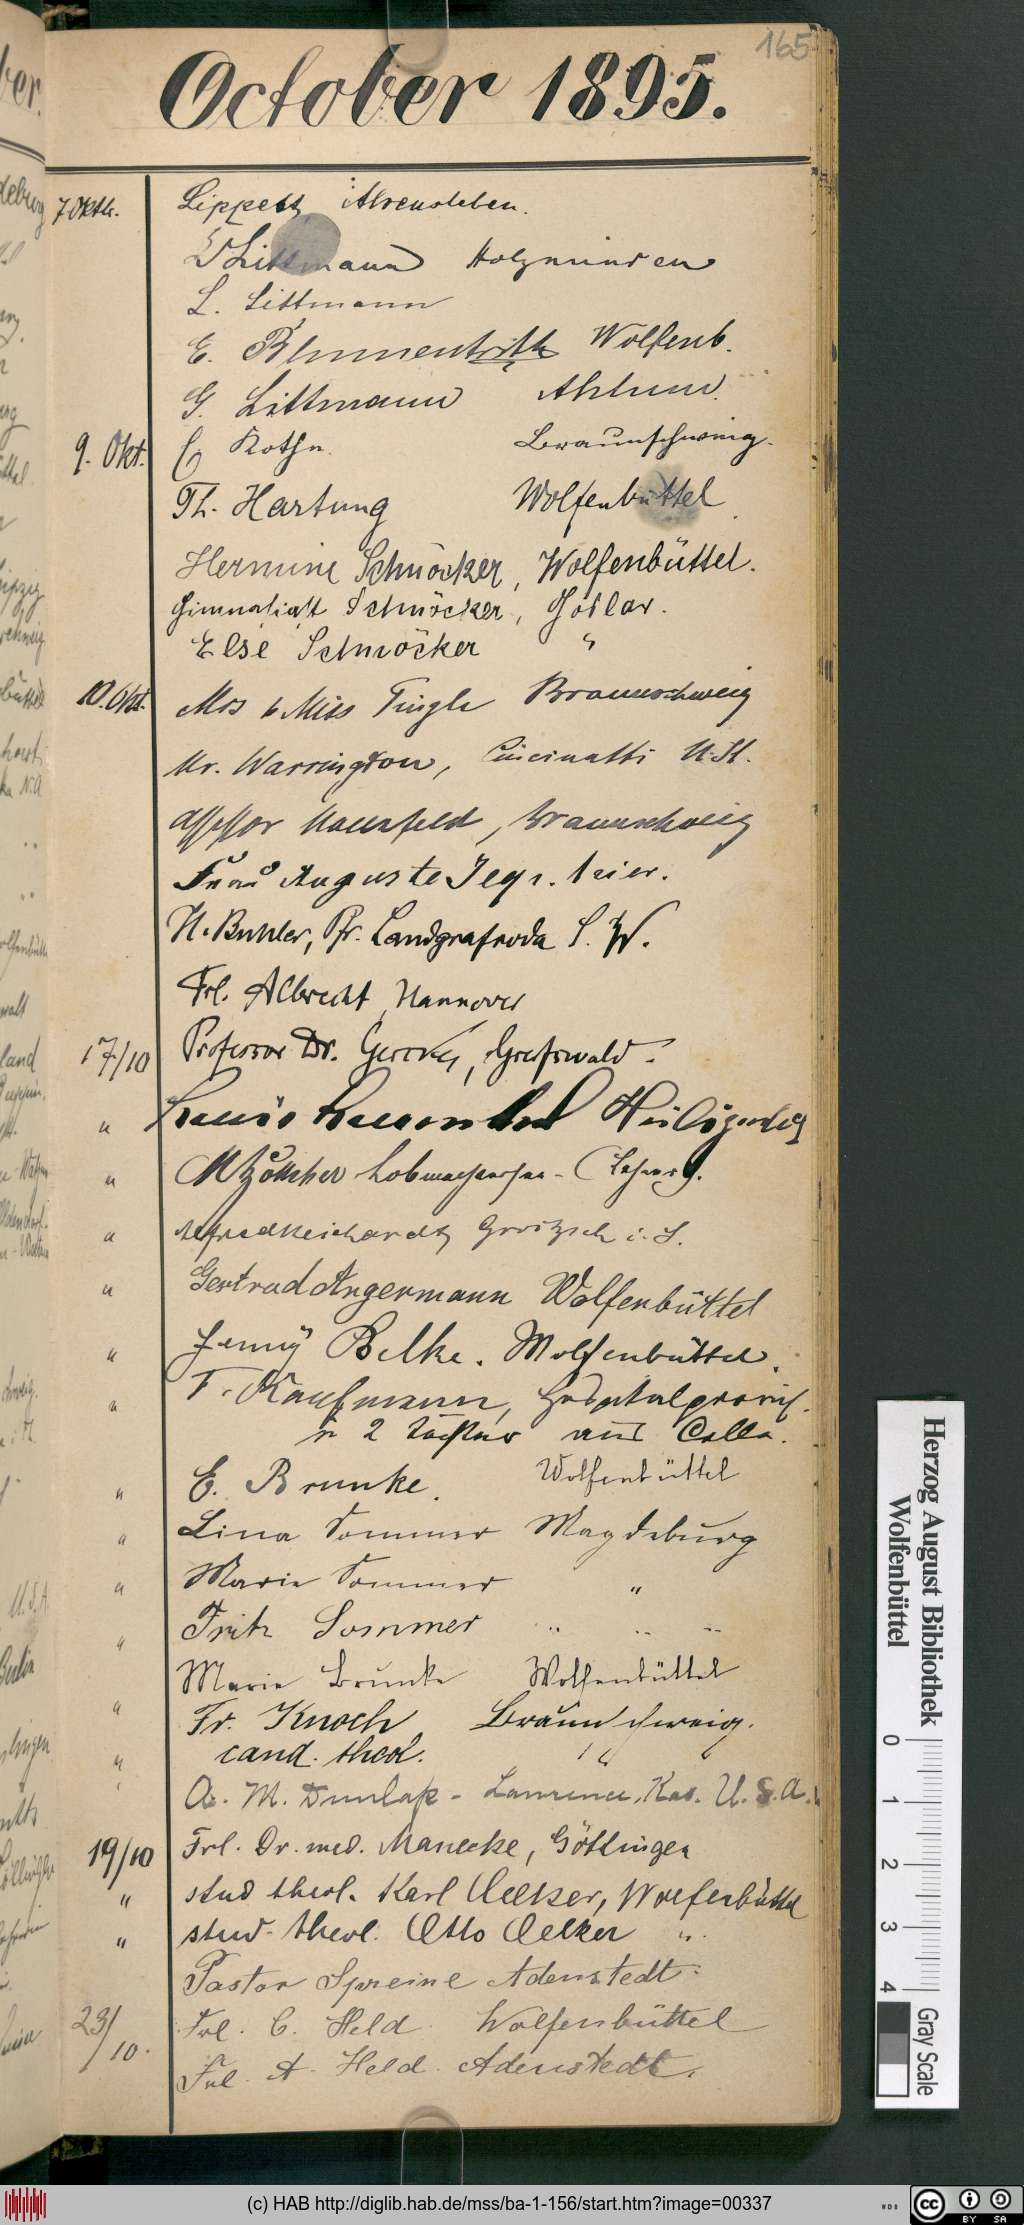 165
October 1895.
7 Oktb. Lippert Alvensleben.
Littmann Holzminden
L. Littmann
E. Blumentritt Wolfenb.
G. Littmann Ahlum.
9. Okt. C Kothe Braunschweig.
Th. Hartung Wolfenbüttel
Hermine Schmöcker, Wolfenbüttel.
Gimnasiast Schmöcker, Goslar.
Else Schmöcker "
10. Okt. Mrs & Miss Tingle Braunschweig
Mr. Warrington, Cincinatti U. St.
Assessor, Braunschweig
Frau Auguste
H. Buhler, Pfr. Landgrafroda S. W.
Frl. Albrecht, Hannover
17/10 Professor Dr. Gercke, Greifswald.
"
"
" Alfred Reichardt Groitzsch i. S.
" Gertrud Angermann Wolfenbüttel
" Jenny Belke. Wolfenbüttel.
" F. Kaufmann, Hospitalprovis.
n 2 Töchter aus Celle.
" E. Brunke. Wolfenbüttel
" Lina Sommer Magdeburg
" Marie Sommer "
" Fritz Sommer " " "
" Marie Brunke Wolfenbüttel
" Fr. Knoch Braunschweig.
cand. theol. " "
A. M. Dunlap - Lawrence, Kas. U. S. A.
19/10 Frl. Dr. med. Manecke, Göttingen
" stud theol. Karl Oelker, Wolfenbüttel
" stud. theol. Otto Oelker "
Pastor Spreine Adenstedt.
23/10. Frl. C. Held Wolfenbüttel
Frl. A. Held. Adenstedt.
Herzog August Bibliothek
Wolfenbüttel
0 1 2 3 4
Gray Scale
(c) HAB http://diglib.hab.de/mss/ba-1-156/start.htm?image=00337
WDB
cc BY SA